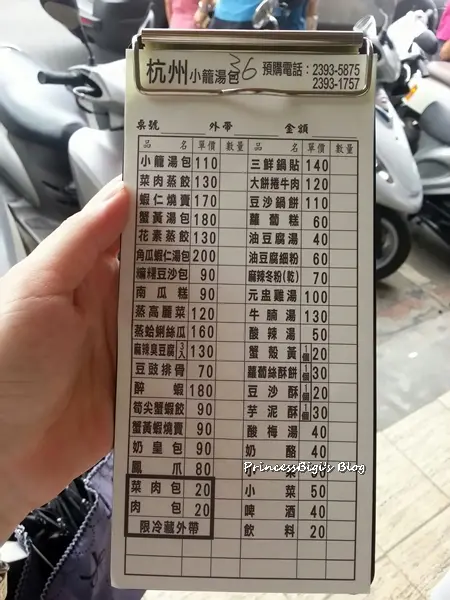 杭州小籠湯包 36 預購電話：2393-5875
2393-1757
桌號 外帶 金額
品名 單價 數量 品名 單價 數量
小籠湯包 110 三鮮鍋貼 140
菜肉蒸餃 130 大餅捲牛肉 120
蝦仁燒賣 170 豆沙鍋餅 110
蟹黃湯包 180 蘿蔔糕 60
花素蒸餃 130 油豆腐湯 40
角瓜蝦仁湯包 200 油豆腐細粉 60
豆沙包 90 麻辣冬粉(乾) 70
南瓜糕 90 元盅雞湯 100
蒸高麗菜 120 牛腩湯 130
蒸蛤蜊絲瓜 160 酸辣湯 50
麻辣臭豆腐 3入 130 蟹殼黃 1個 20
豆豉排骨 70 蘿蔔絲酥餅 1個 30
醉蝦 180 豆沙酥 1個 20
筍尖蟹蝦餃 90 芋泥酥 1個 30
蟹黃蝦燒賣 90 酸梅湯 40
奶皇包 90 奶酪 40
鳳爪 80 小
菜肉包 20 小菜 50
肉包 20 啤酒 40
限冷藏外帶 飲料 20
PrincessBigi's Blog